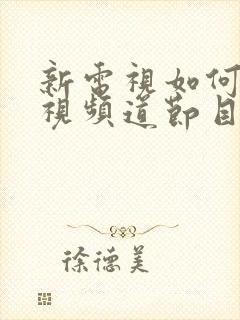 新電視如何
視頻道節目
徐德美